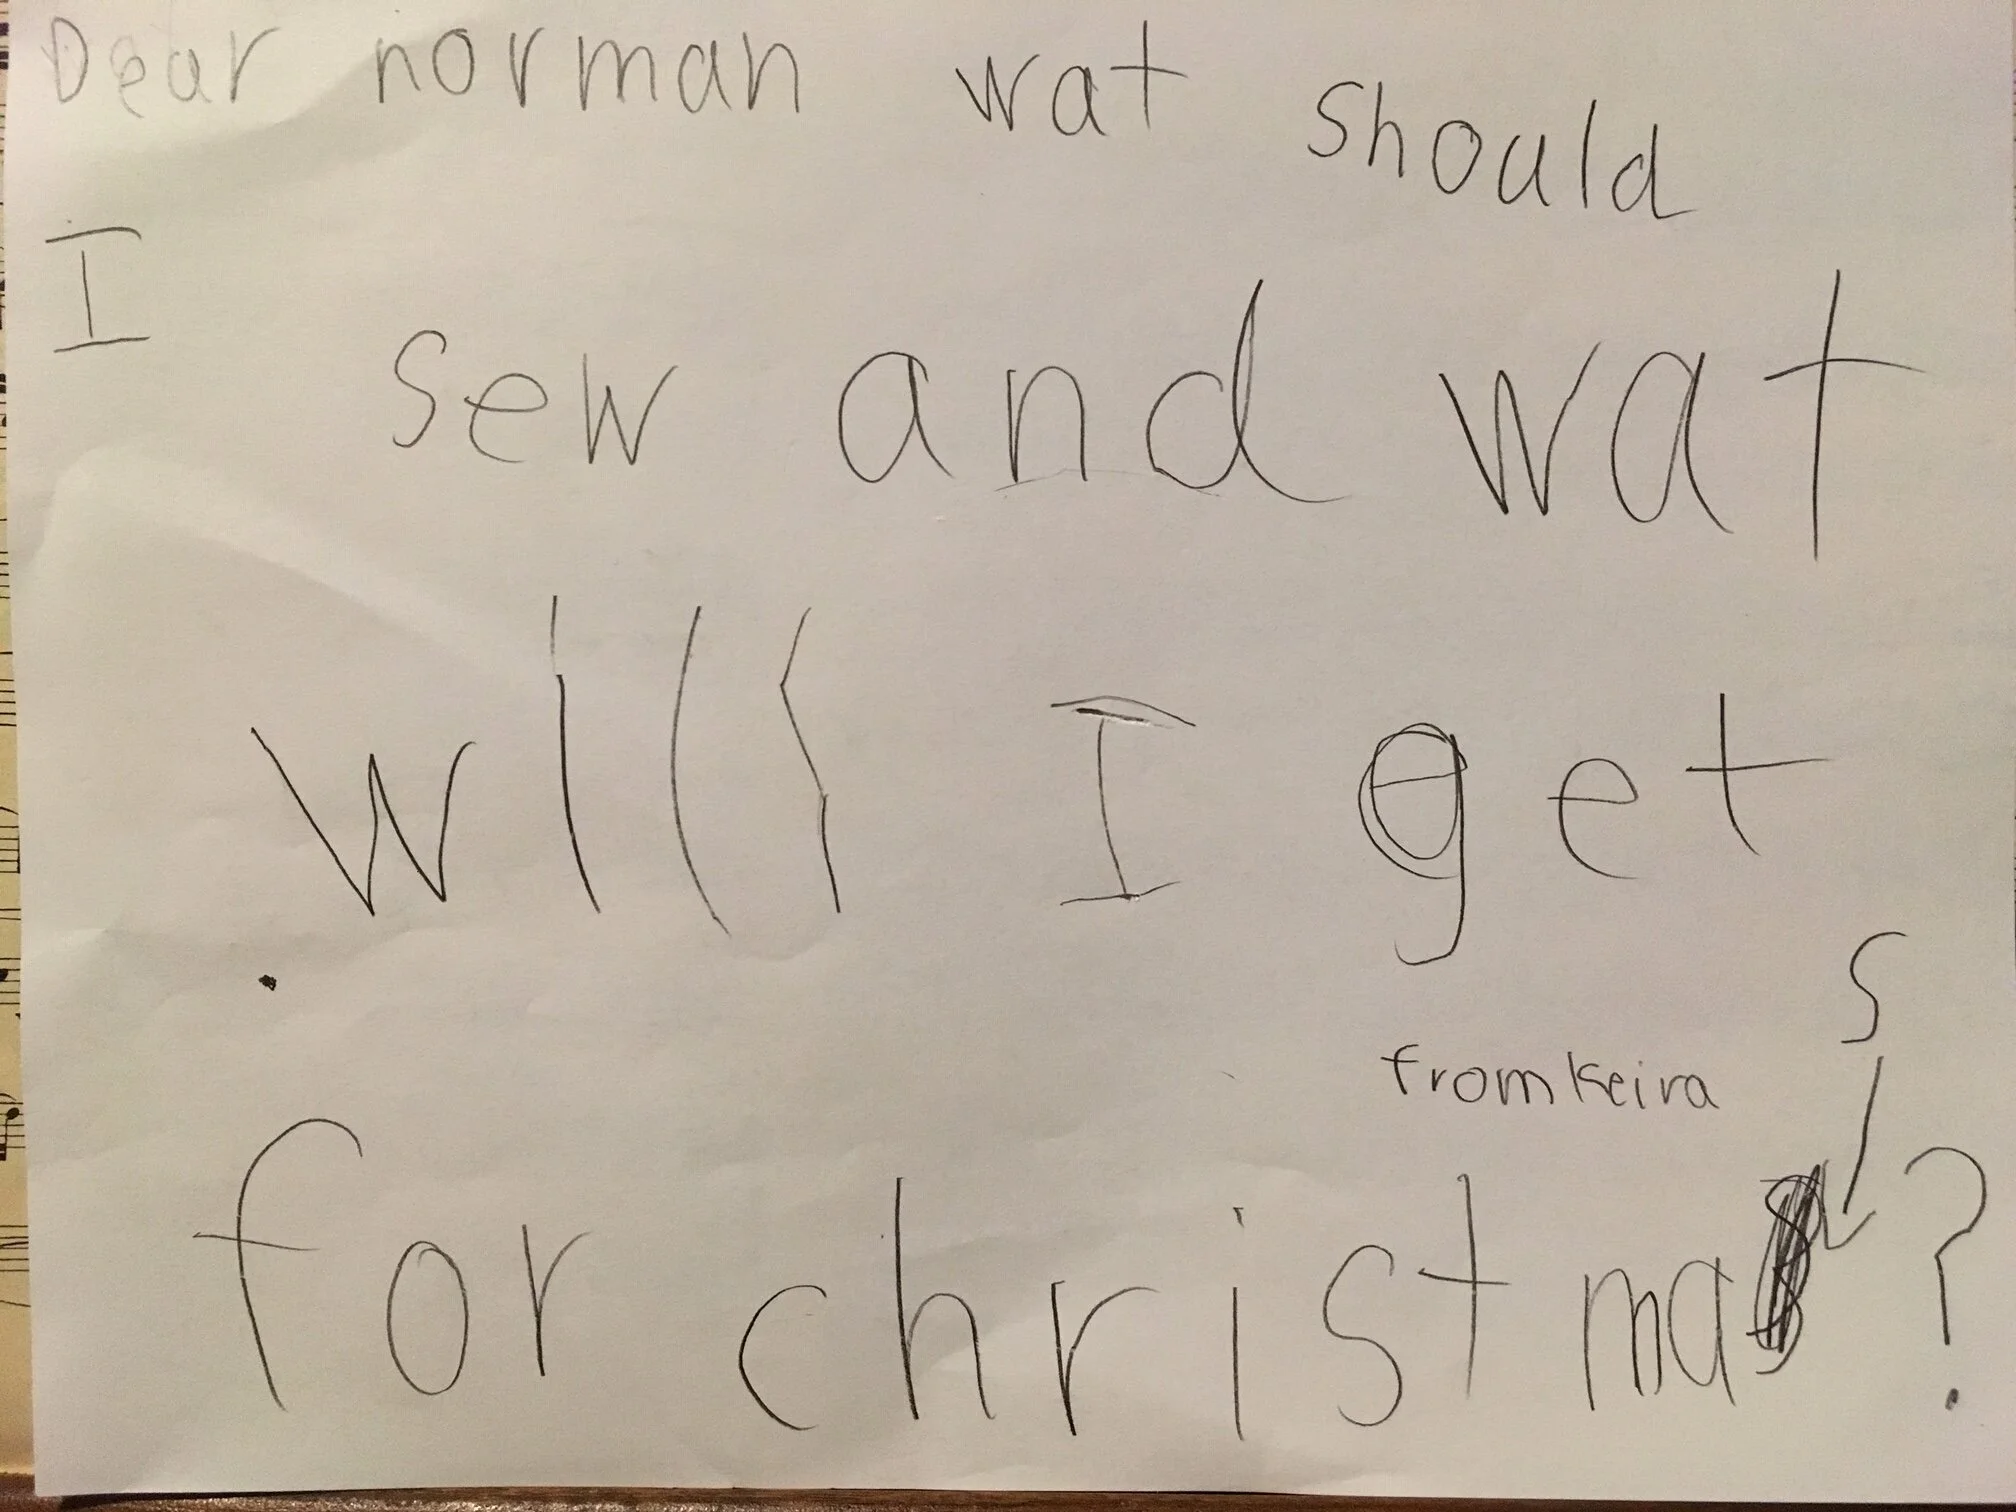 Dear norman wat should
I sew and wat
will I get
from keira
S
for christmas?